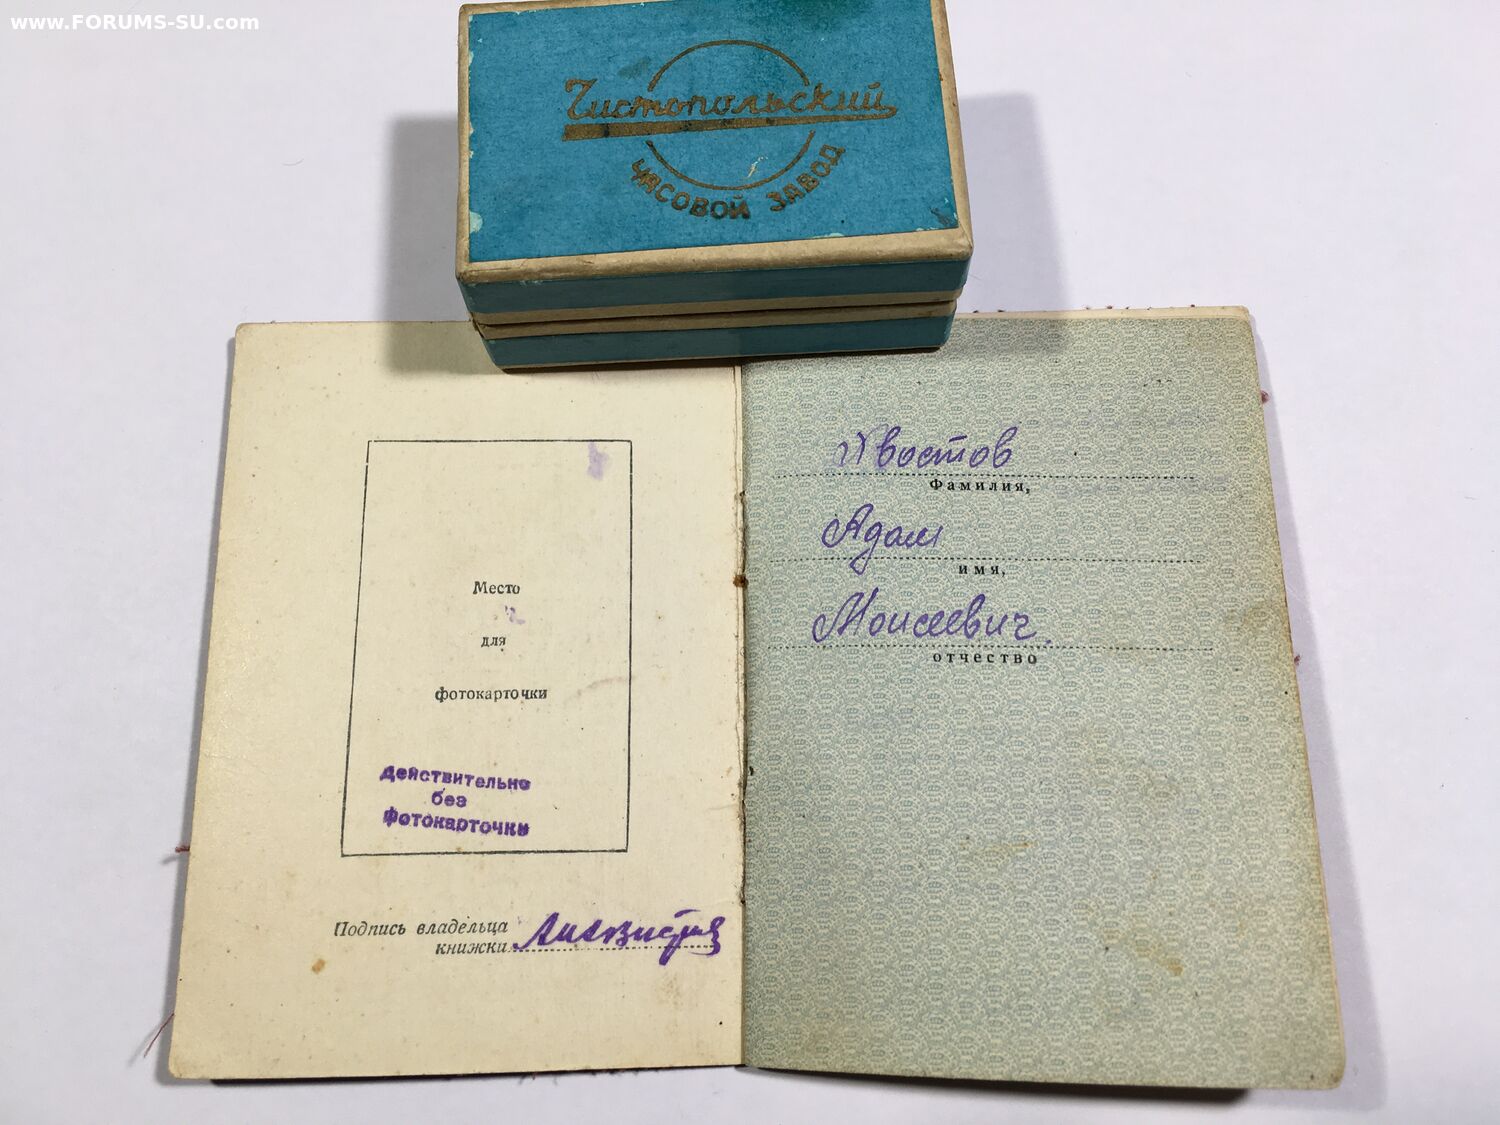 www.FORUMS-SU.com
Чистопольский
ЧАСОВОЙ ЗАВОД
Место
для
фотокарточки
Действительно
без
фотокарточки
Подпись владельца
книжки
Хвостов
Фамилия,
Адам
имя,
Моисеевич.
отчество